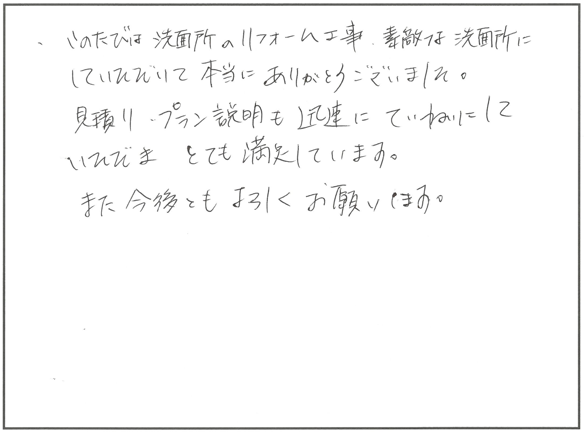 、このたびは洗面所のリフォーム工事、素敵な洗面所に
していただいて本当にありがとうございました。
見積り・プラン説明も迅速にていねいにして
いただき とても満足しています。
また今後ともよろしくお願いします。